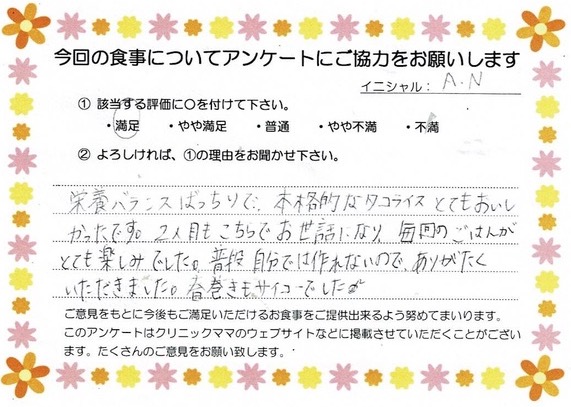 今回の食事についてアンケートにご協力をお願いします
イニシャル： A.N
① 該当する評価に○を付けて下さい。
・満足 ・やや満足 ・普通 ・やや不満 ・不満
② よろしければ、①の理由をお聞かせ下さい。
栄養バランスばっちりで、本格的なタコライスとてもおいし
かったです。2人目もこちらでお世話になり、毎回のごはんが
とても楽しみでした。普段自分では作れないので、ありがたく
いただきました。春巻きもサイコーでした
ご意見をもとに今後もご満足いただけるお食事をご提供出来るよう努めてまいります。
このアンケートはクリニックママのウェブサイトなどに掲載させていただくことがござい
ます。たくさんのご意見をお願い致します。